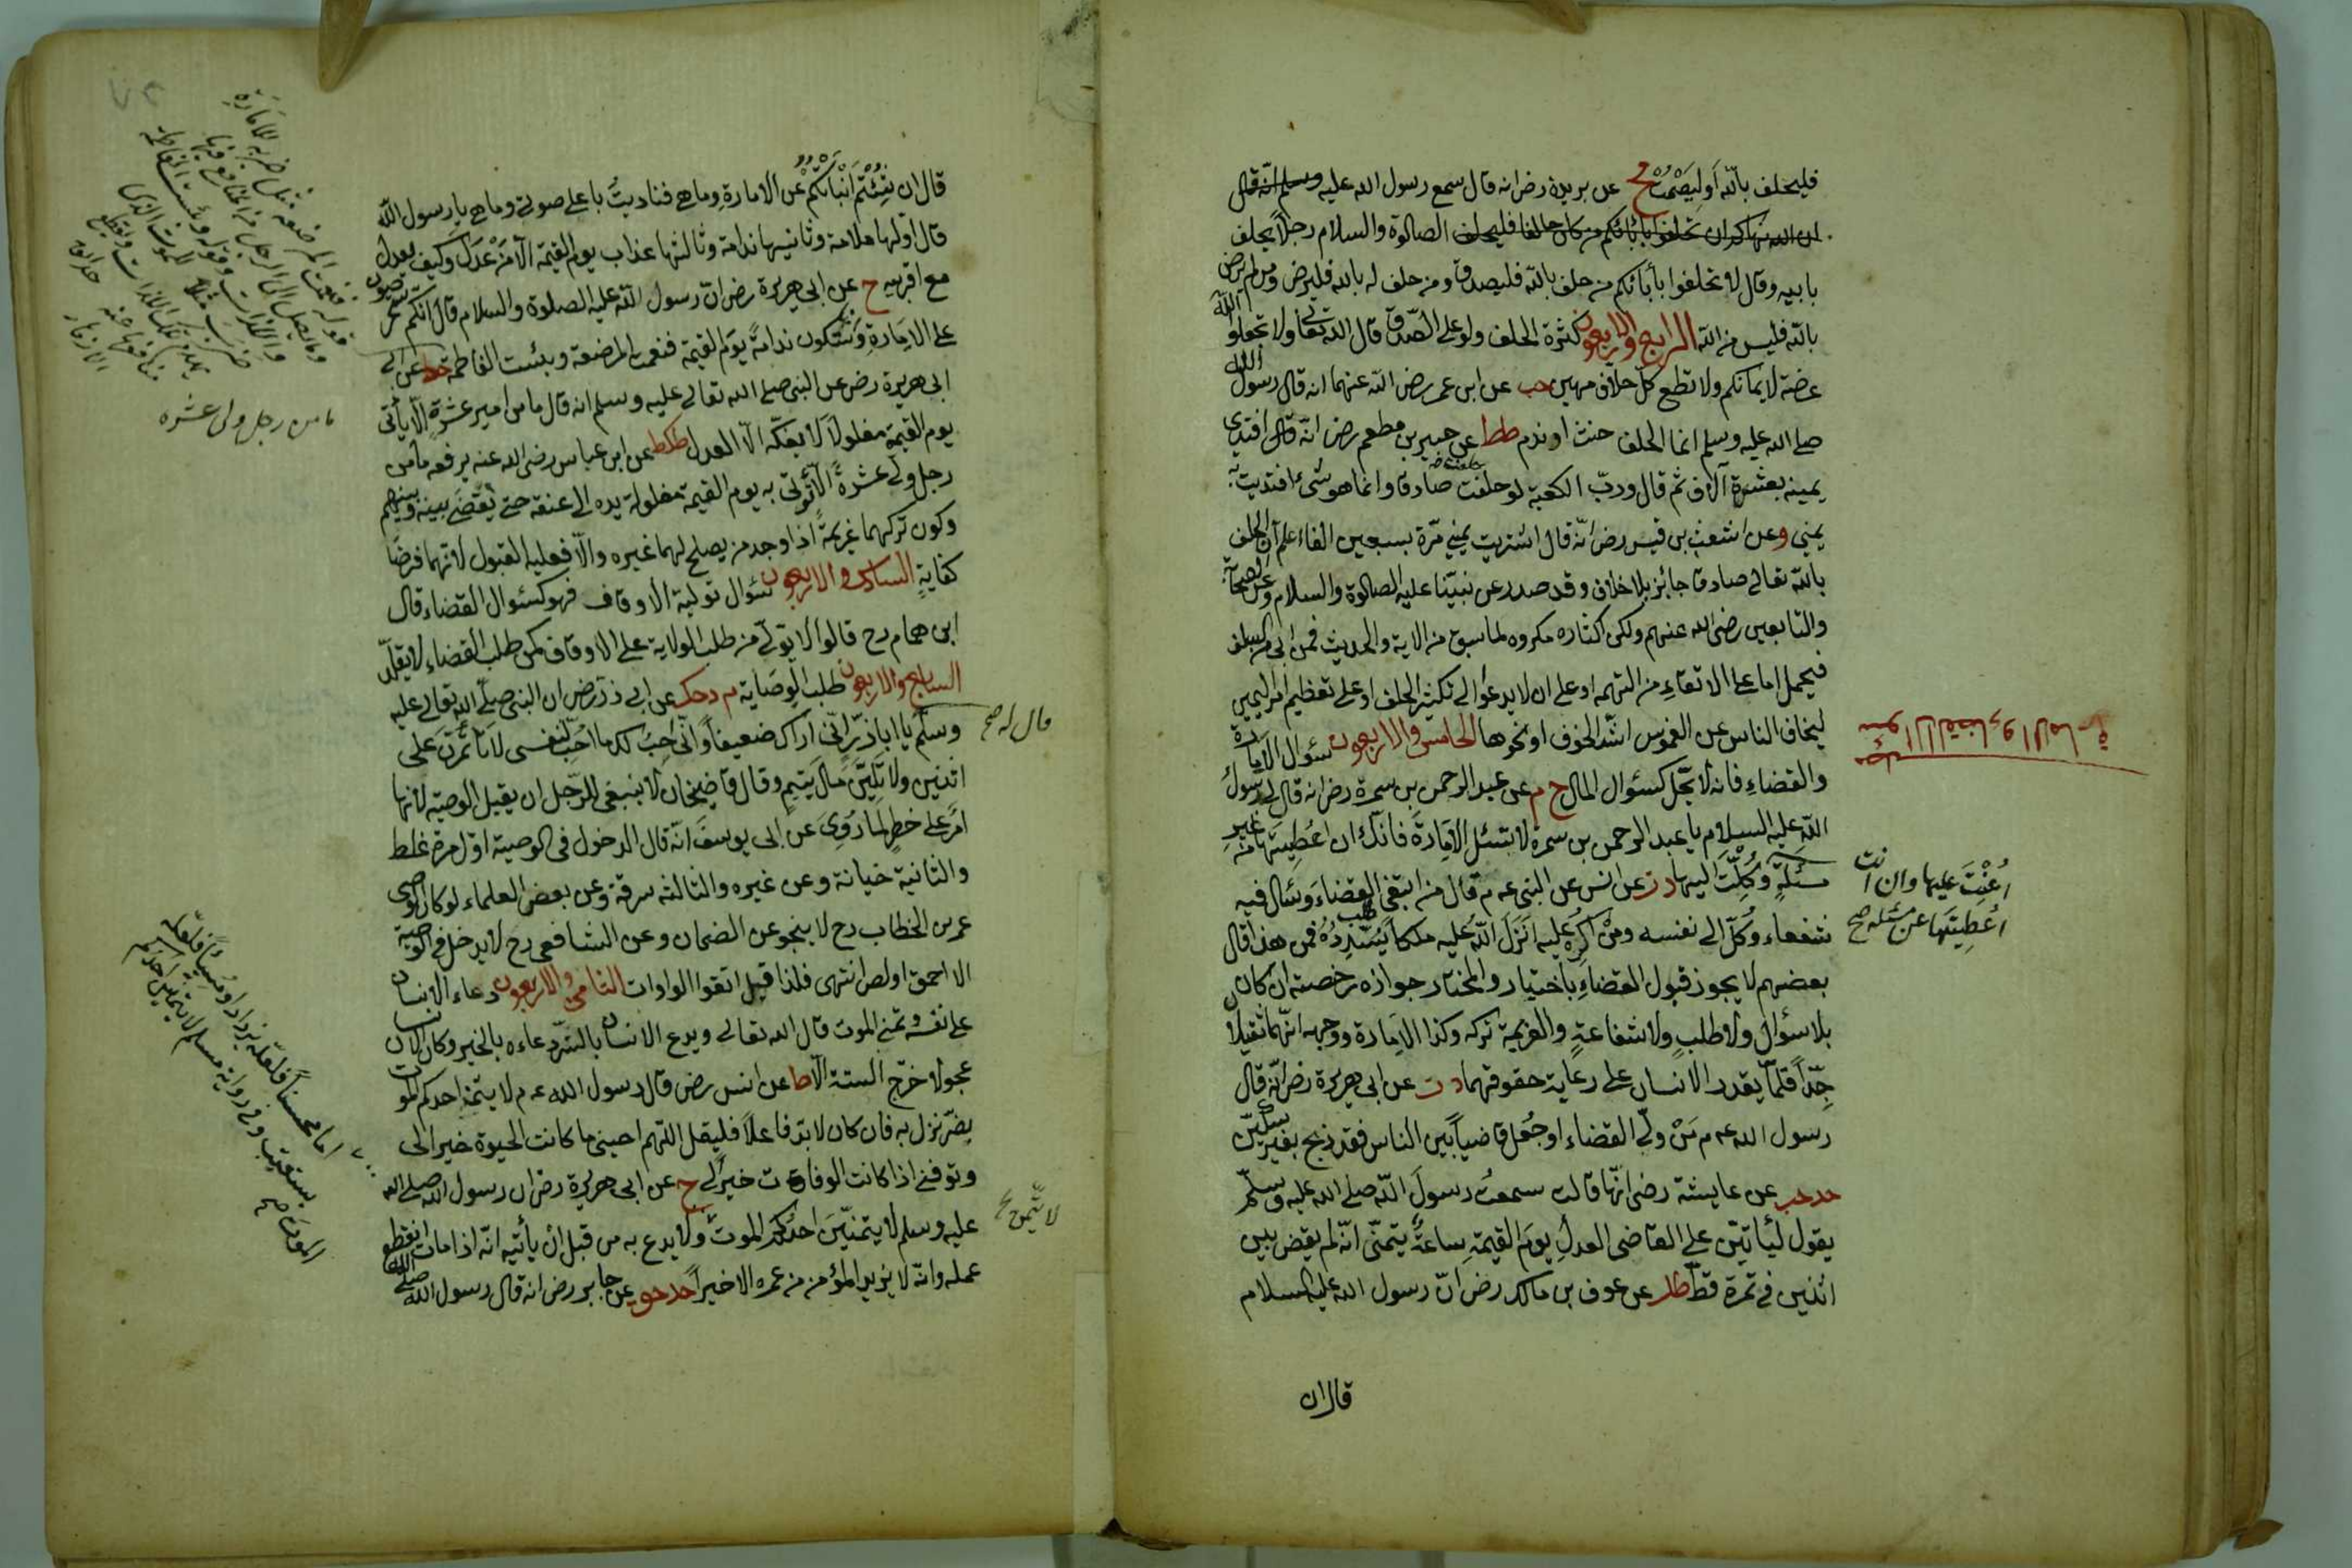 فليحلف بالله اَوليَصْمُتْ خ م عن بريدة رض انه قال سمع رسول الله عليه وسلم انه قال
ان الله ينهاكم ان تحلفوا بأبائكم من كان حالفا فليحلف الصلوة والسلام رجلاً يحلف
بابيه وقال لا تحلفوا بأبائكم من حلف بالله فليصدق ومن حلف له بالله فليرض ومن لم يرض
بالله فليس من الله الرابع والاربعون كثرة الحلف ولو على الصدق قال الله تعالى ولا تجعلوا الله
عرضة لايمانكم ولا تطع كلّ حلاّف مهين حب عن ابن عمر رض الله عنهما انه قال رسول الله
صلى الله عليه وسلم انما الحلف حنث او ندم طط عن جبير بن مطعم رض انّه قال افتدى
يمينه بعشرة آلاف ثم قال وربّ الكعبة لو حلفت صادقا وانما هو شئ افتديت به
يمينى وعن اشعث بن قيس رض انّه قال اشتريت يمينى مرّة بسبعين الفا اعلم ان الحلف
بالله تعالى صادقا جائز بلا خلاف وقد صدر عن نبيّنا عليه الصلوة والسلام وعن الصحابة
والتابعين رضى الله عنهم ولكن اكثاره مكروه لما سبق من الاية والحديث فمن ابى من السلف
فيحمل اما على الاتقاء من التهمة او على ان لا يدعوا الى تكثير الحلف او على تعظيم امر اليمين
ليخاف الناس عن الغموس اشدّ الخوف او نحوها الخامس والاربعون سؤال الامارة
والقضاء فانه لا يحّل كسؤال المال خ م عن عبد الرحمن بن سمرة رض انه قال لى رسول
الله عليه السلام يا عبد الرحمن بن سمرة لا تسئل الاِمَارَةَ فانّك ان اعُطِيتَها من غير
مسئلةٍ وُكِلْتَ اليها د ت عن انس عن النبى عه م قال من ابتغى القضاءَ وسَأل فيه
شفعاء وُكِلَ الى نفسه ومنْ اُكرِه عليه اَنزَلَ اللهُ عليه ملكاً يُسَدِّدُهُ فمن هذا قال
بعضهم لا يجوز قبول القضاءِ باختيار والمختار جوازه رخصته ان كان
بلا سؤال ولا طلبٍ ولا شفاعةٍ والعزيمة تركه وكذا الاِمَارة ووجهه انّهما ثقيلا
جِدّاً قلمّا يقدر الانسان على رعاية حقوقهما د ت عن ابى هريرة رض انّه قال
رسول الله عه م مَنْ ولّى القضاء او جُعل قاضياً بين الناس فقد ذبح بغير سكين
حد حب عن عايشة رضى انّها قالت سمعتُ رسولَ الله صلى الله عليه وسلم
يقول ليأتينّ على القاضى العدلِ يومَ القيمةِ ساعةٌ يتمنّى انّه لم يقض بين
اثنين فى تمرة قطّ طك عن عوف بن مالك رض انّ رسول الله عليه السلام
قال ان
سؤال القضاء والامارة
اُعِنْتَ عليها وان انت
اُعْطِيتَها عن مسئلة صح
قال ان شِئْتُمْ اَنْبَأتُكُمْ عن الامارةِ وما هى فناديتُ باعلى صوتى وما هى يا رسول الله
قال اوّلها ملامة وثانيها ندامة وثالثها عذاب يوم القيمة الاّ مَنْ عَدَلَ وكيف يعدل
مع اقربيه خ عن ابى هريرة رض انّ رسول الله عليه الصلوة والسلام قال انّكم ستحرصون
على الامَارةِ وَسَتَكون ندامةً يَومَ القيمة فنعمت المرضعة وبئست الفاطمة حد عن
ابى هريرة رض عن النبى صلى الله تعالى عليه وسلم انه قال ما من امير عشرةٍ الاّ يأتى
يوم القيمة مغلولاً لا يفكّه الاّ العدل طكط عن ابن عباس رضى الله عنه يرفعه ما من
رجل ولى عشرةً الاّ اُتى به يوم القيمة مغلولة يده الى عنقه حتى يُقضَى بينه وبينهم
وكون تركهما عزيمةً اذا وجد من يصلح لهما غيره والاّ فعليه القبول لانّهما فرضَا
كفايةٍ السادس والاربعون سؤال تولية الاوقاف فهو كسئوال القضاء قال
ابن همام رح قالوا لا يولّى من طلب الولاية على الاوقاف كمن طلب القضاء لا يقلّد
السابع والاربعون طلب الوصَاية م د حك عن ابى ذر رض ان النبى صلّى الله تعالى عليه
وسلّم يا اباذرّ انّى اراك ضعيفاً وانّى احِبُ لك ما احُبّ لنفسى لا تأمَّرَنّ على
اثنين ولا تَلِيَنّ مَالَ يَتيمٍ وقال قاضيخان لا ينبغى للرّجل ان يقبل الوصية لانها
امر على خطر لما رُوِى عن ابى يوسف انّه قال الدخول فى الوصية اوّل مرة غلط
والثانية خيانة وعن غيره والثالثه سرقة وعن بعض العلماء لو كان الوصى
عمر بن الخطاب رح لا ينجو عن الضمان وعن الشافعى رح لا يدخل فى الوصية
الا احمق او لص انتهى فلذا قيل اتقوا الواوات الثامن والاربعون دعاء الانسان
على نفسه وتمنى الموت قال الله تعالى ويدع الانسان بالشرّ دعاءه بالخير وكان الانسان
عجولا خرّج الستة الاّ طا عن انس رض قال رسول الله عه م لا يتمنّ احدكم الموت
بضّر نزل به فان كان لا بدّ فاعلاً فليقل اللهم احينى ما كانت الحيوة خيرا لى
وتوفنى اذا كانت الوفاة خيراً لى خ عن ابى هريرة رض ان رسول الله صلى الله
عليه وسلم لا يتمنّيَنّ احدُكم الموتَ ولا يدع به من قبل ان يأتيه انّه اذا مات انقطع
عمله وانّه لا يزيد المؤمن من عمره الا خيراً حد حق عن جابر رض انه قال رسول الله صلى الله
ما من رجل ولى عشرة
قال له صح
اما محسناً فلعلّه يزداد واما مسيئاً فلعله
يستعتب وفى رواية مسلم لا يتمنين احدكم
الموت صح